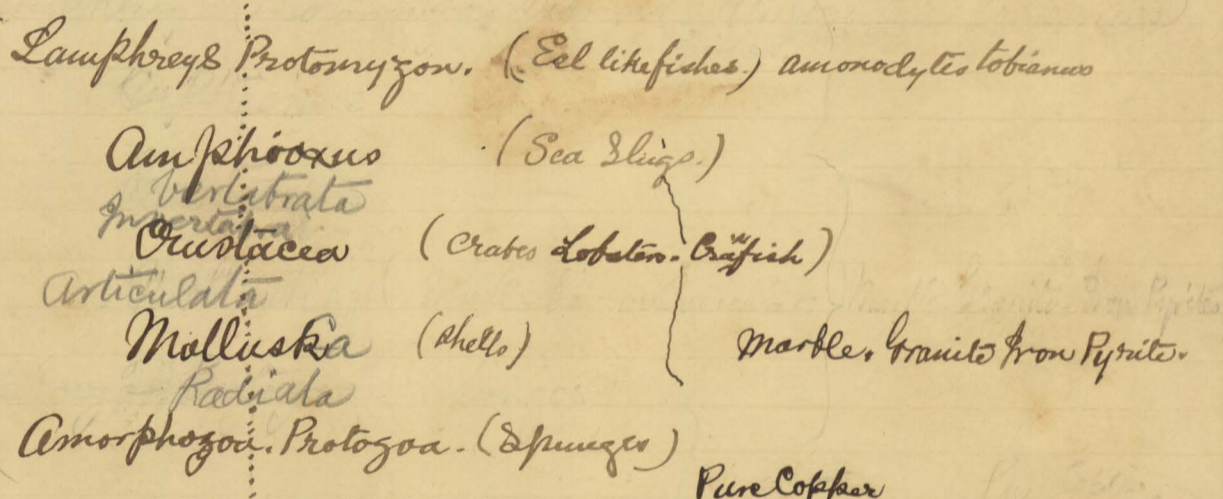 Lamphreys Protomyzon. (Eel like fishes.) amonodytes tobianus
Amphioxus (Sea Slugs.)
Vertebrata
Invertabra
Crustacea (Crabes Lobsters. Crawfish)
Articulata
Molluska (Shells) Marble. Granite Iron Pyrite.
Radiata
Amorphozoa. Protozoa. (Spunges)
Pure Copper